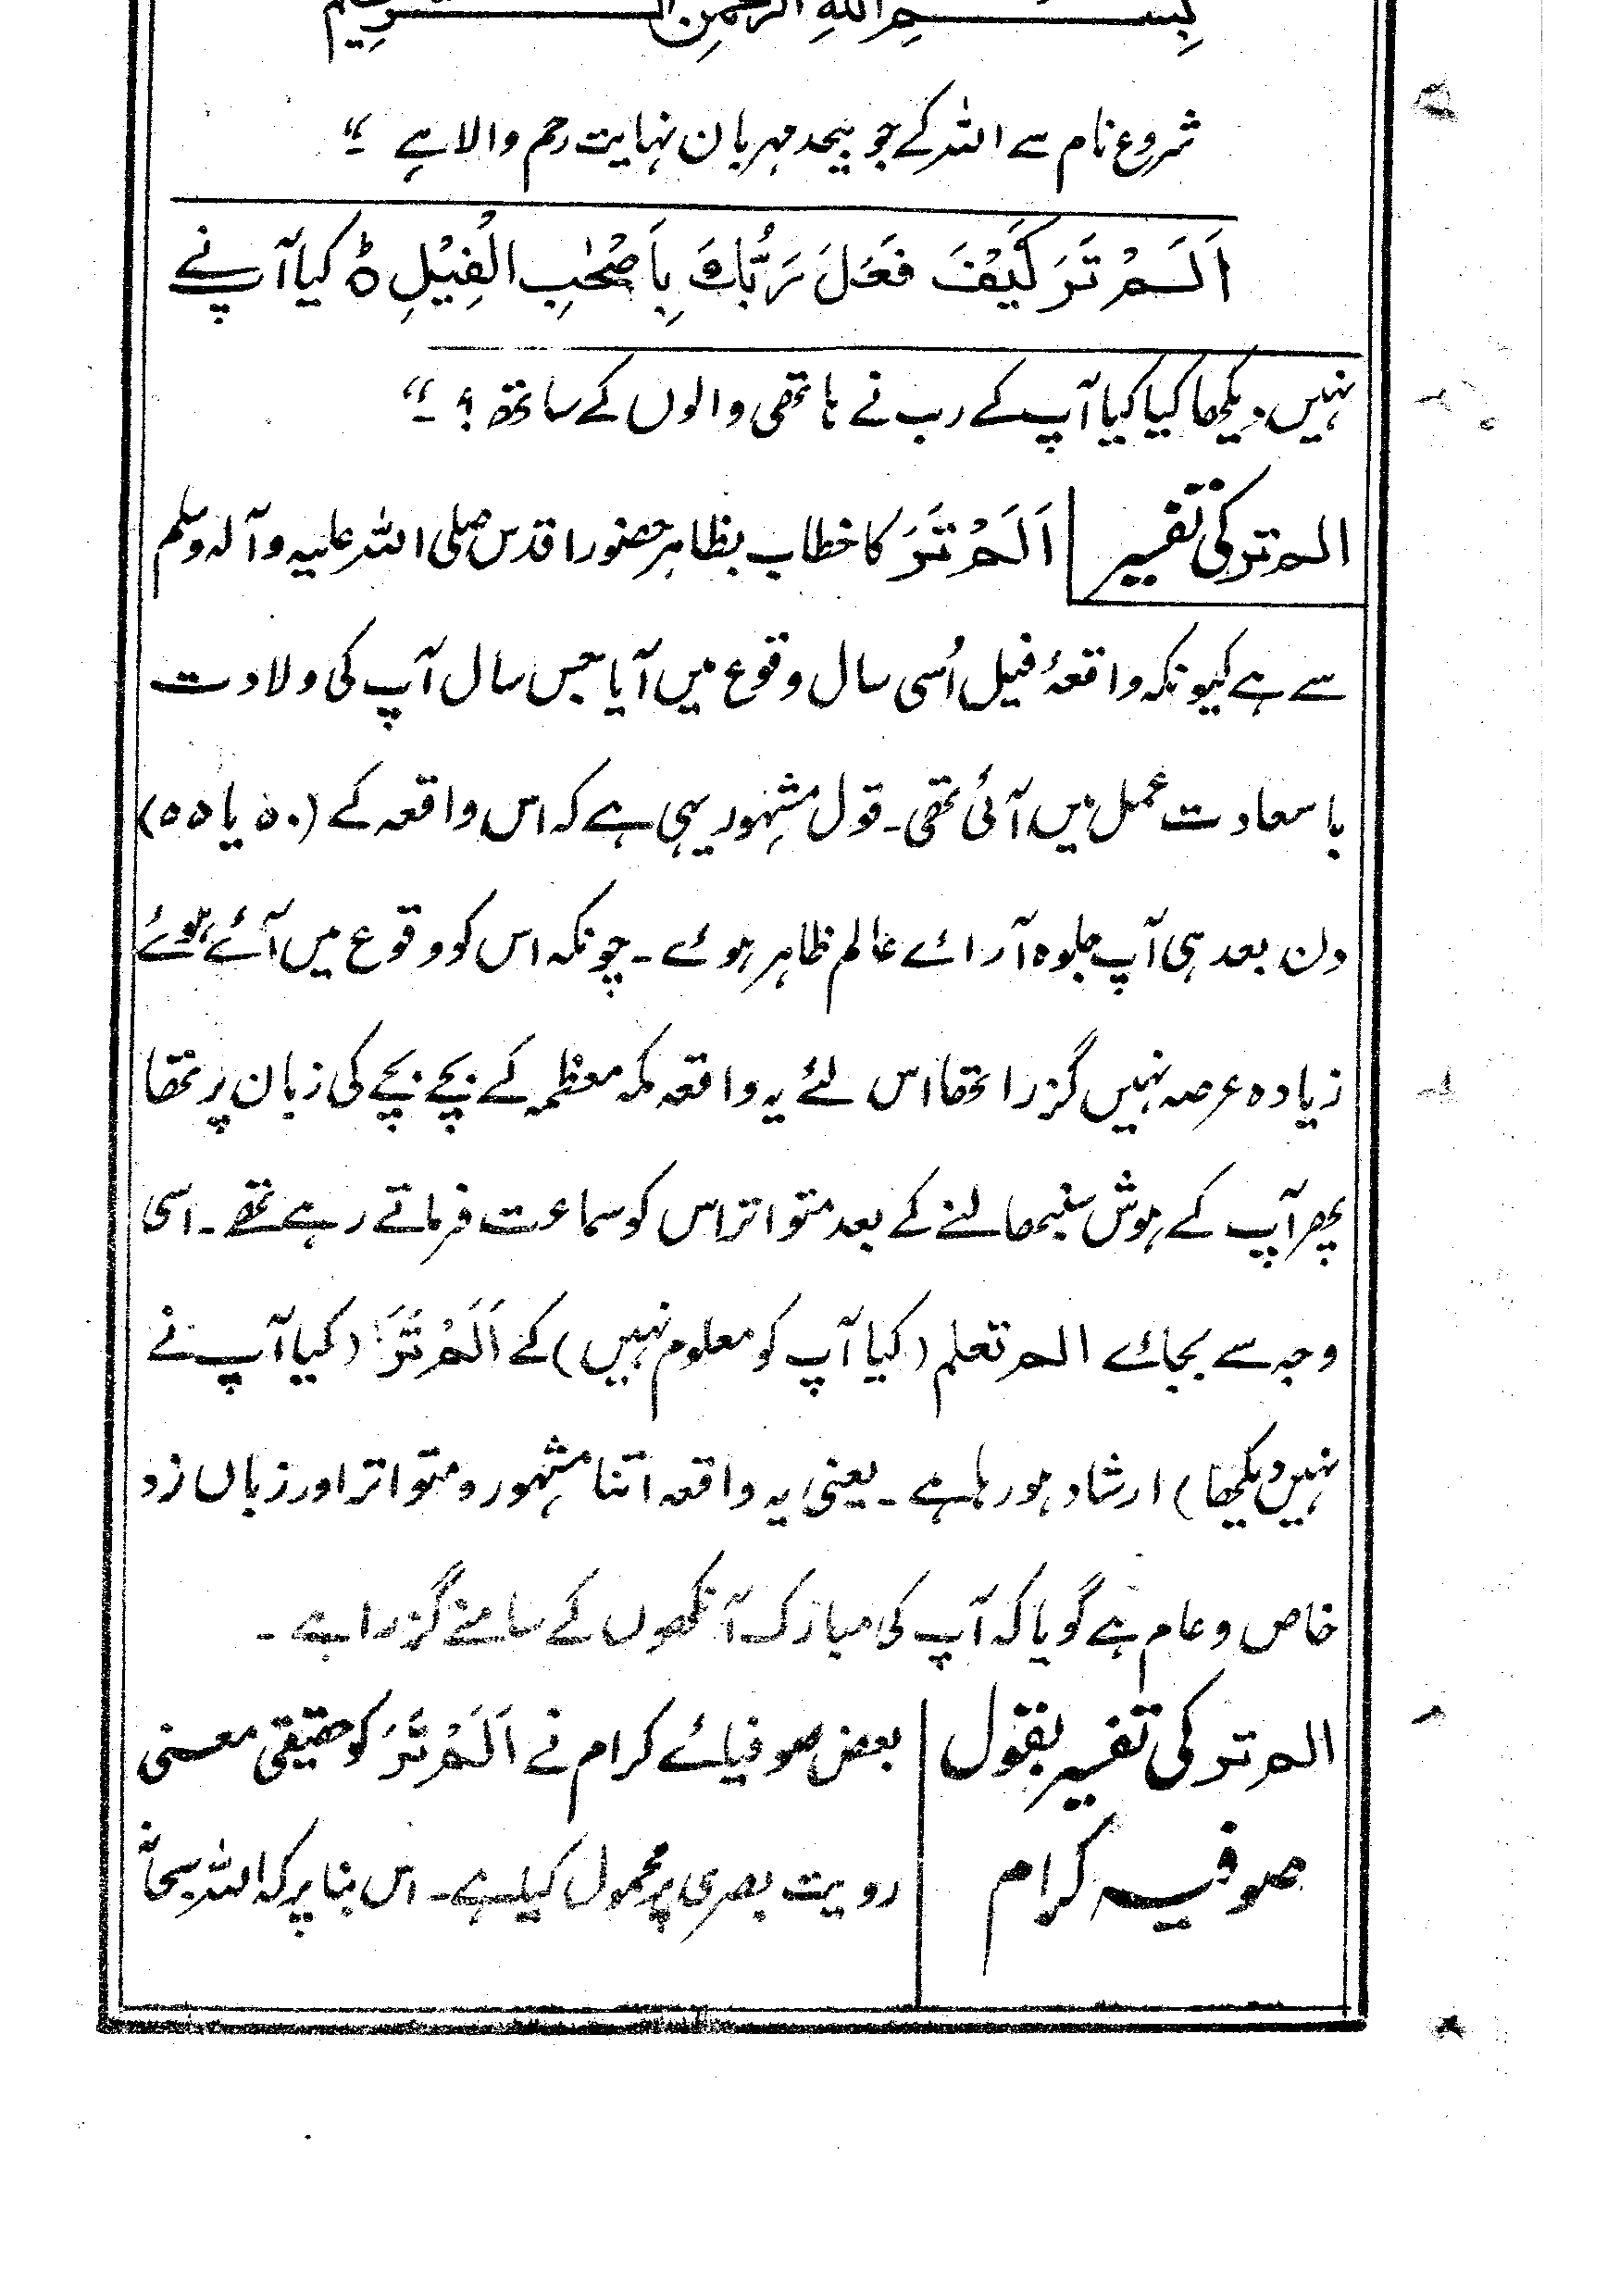 بِسْمِ اللهِ الرَّحْمٰنِ الرَّحِيْمِ
شروع نام سے اللہ کے جو بیحد مہربان نہایت رحم والا ہے ۔“
اَلَمْ تَرَ كَيْفَ فَعَلَ رَبُّكَ بِاَصْحٰبِ الْفِيْلِ ٥ کیا آپ نے
نہیں دیکھا کیا کیا آپ کے رب نے ہاتھی والوں کے ساتھ ؟ ۔“
الم تر کی تفسیر | اَلَمْ تَرَ کا خطاب بظاہر حضور اقدس صلی اللہ علیہ وآلہ وسلم
سے ہے کیونکہ واقعۂ فیل اُسی سال وقوع میں آیا جس سال آپ کی ولادت
با سعادت عمل میں آئی تھی ۔ قول مشہور یہی ہے کہ اس واقعہ کے (۵۰ یا ۵۵)
دن بعد ہی آپ جلوہ آرائے عالم ظاہر ہوئے ۔ چونکہ اس کو وقوع میں آئے ہوئے
زیادہ عرصہ نہیں گزرا تھا اس لئے یہ واقعہ مکہ معظمہ کے بچے بچے کی زبان پر تھا
پھر آپ کے ہوش سنبھالنے کے بعد متواتر اس کو سماعت فرماتے رہے تھے ۔ اسی
وجہ سے بجائے الم تعلم (کیا آپ کو معلوم نہیں) کے اَلَمْ تَرَ (کیا آپ نے
نہیں دیکھا) ارشاد ہو رہا ہے ۔ یعنی یہ واقعہ اتنا مشہور و متواتر اور زباں زد
خاص و عام ہے گویا کہ آپ کی مبارک آنکھوں کے سامنے گزرا ہے ۔
الم تر کی تفسیر بقول
صوفیہ کرام
بعض صوفیائے کرام نے اَلَمْ تَرَ کو حقیقی معنی
رویت بصری پر محمول کیا ہے ۔ اس بنا پر کہ اللہ سبحانہٗ